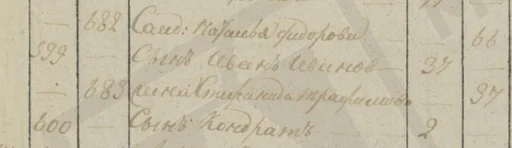 682 Салд: Наталья федорова 66
599 Сынъ Иванъ Ивановъ 37
683 жена Стефанида трафимова 37
600 Сынъ Кондратъ 2